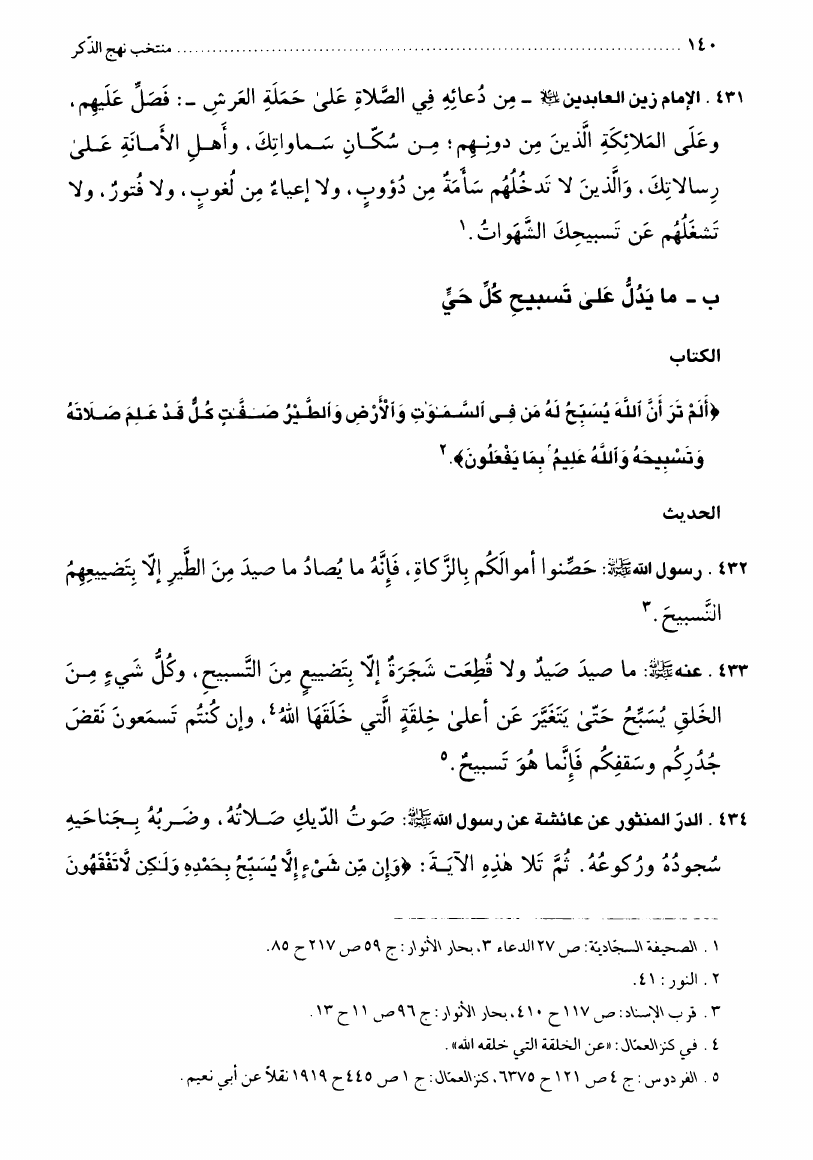 ١٤٠ ........ منتخب نهج الذّكر
٤٣١ . الإمام زين العابدين ﷺ ـ مِن دُعائِهِ فِي الصَّلاةِ عَلىٰ حَمَلَةِ العَرشِ ـ: فَصَلِّ عَلَيهِم،
وعَلَى المَلائِكَةِ الَّذينَ مِن دونِهِم؛ مِن سُكّانِ سَماواتِكَ، وأَهلِ الأَمانَةِ عَلىٰ
رِسالاتِكَ، وَالَّذينَ لا تَدخُلُهُم سَأمَةٌ مِن دُؤوبٍ، ولا إعياءٌ مِن لُغوبٍ، ولا فُتورٌ، ولا
تَشغَلُهُم عَن تَسبيحِكَ الشَّهَواتُ.١
ب ـ ما يَدُلُّ عَلىٰ تَسبيحِ كُلِّ حَيٍّ
الكتاب
﴿أَلَمْ تَرَ أَنَّ ٱللَّهَ يُسَبِّحُ لَهُ مَن فِى ٱلسَّمَٰوَٰتِ وَٱلْأَرْضِ وَٱلطَّيْرُ صَـٰفَّـٰتٍ كُلٌّ قَدْ عَلِمَ صَلَاتَهُ
وَتَسْبِيحَهُ وَٱللَّهُ عَلِيمُۢ بِمَا يَفْعَلُونَ﴾.٢
الحديث
٤٣٢ . رسول الله ﷺ: حَصِّنوا أموالَكُم بِالزَّكاةِ، فَإِنَّهُ ما يُصادُ ما صيدَ مِنَ الطَّيرِ إلّا بِتَضييعِهِمُ
التَّسبيحَ.٣
٤٣٣ . عنه ﷺ: ما صيدَ صَيدٌ ولا قُطِعَت شَجَرَةٌ إلّا بِتَضييعٍ مِنَ التَّسبيحِ، وكُلُّ شَيءٍ مِنَ
الخَلقِ يُسَبِّحُ حَتّىٰ يَتَغَيَّرَ عَن أعلىٰ خِلقَةِ الَّتي خَلَقَهَا اللهُ٤، وإن كُنتُم تَسمَعونَ نَقضَ
جُدُرِكُم وسَقفِكُم فَإِنَّما هُوَ تَسبيحٌ.٥
٤٣٤ . الدرّ المنثور عن عائشة عن رسول الله ﷺ: صَوتُ الدّيكِ صَلاتُهُ، وضَربُهُ بِجَناحَيهِ
سُجودُهُ ورُكوعُهُ. ثُمَّ تَلا هٰذِهِ الآيَةَ: ﴿وَإِن مِّن شَىْءٍ إِلَّا يُسَبِّحُ بِحَمْدِهِ وَلَٰكِن لَّاتَفْقَهُونَ
١ . الصحيفة السجّاديّة: ص ٢٧ الدعاء ٣، بحار الأنوار: ج ٥٩ ص ٢١٧ ح ٨٥.
٢ . النور: ٤١.
٣ . قرب الإسناد: ص ١١٧ ح ٤١٠، بحار الأنوار: ج ٩٦ ص ١١ ح ١٣.
٤ . في كنز العمّال: «عن الخلقة التي خلقه الله».
٥ . الفردوس: ج ٤ ص ١٢١ ح ٦٣٧٥، كنز العمّال: ج ١ ص ٤٤٥ ح ١٩١٩ نقلاً عن أبي نعيم.